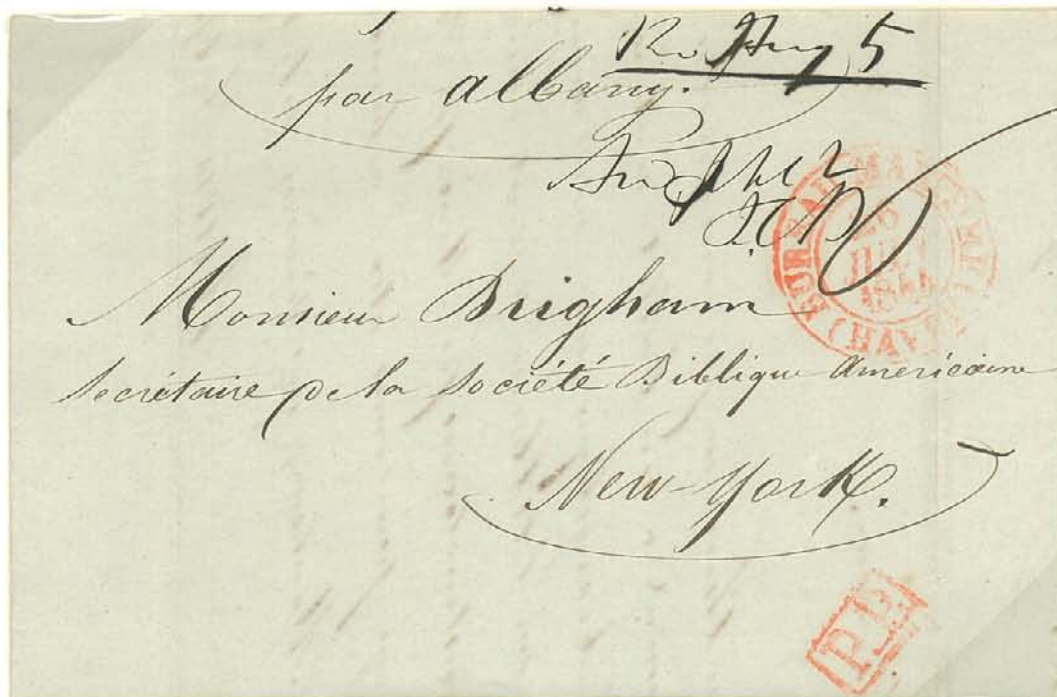 Rec Aug 5
par Albany.
Monsieur Brigham
Secrétaire de la Société Biblique Américaine
New-York.
BUREAU MARITIME (HAVRE)
P.P.